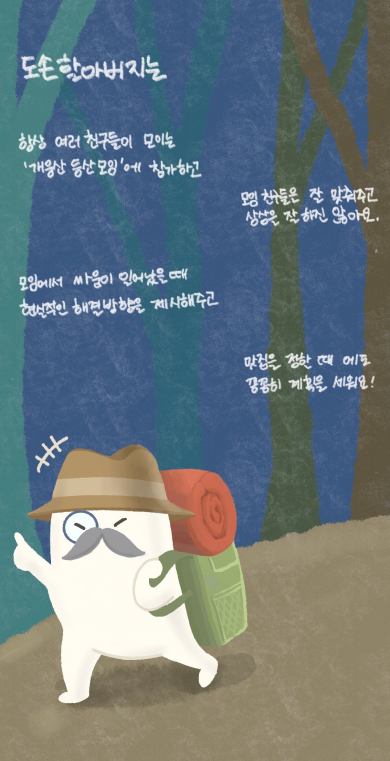 도손 할아버지는
항상 여러 친구들이 모이는
'개웅산 등산 모임'에 참가하고
모임 친구들은 잘 맞춰주고
상상은 잘 하진 않아요.
모임에서 싸움이 일어났을 때
현실적인 해결방향을 제시해주고
맛집을 정할 때 에도
꼼꼼히 계획을 세워요!